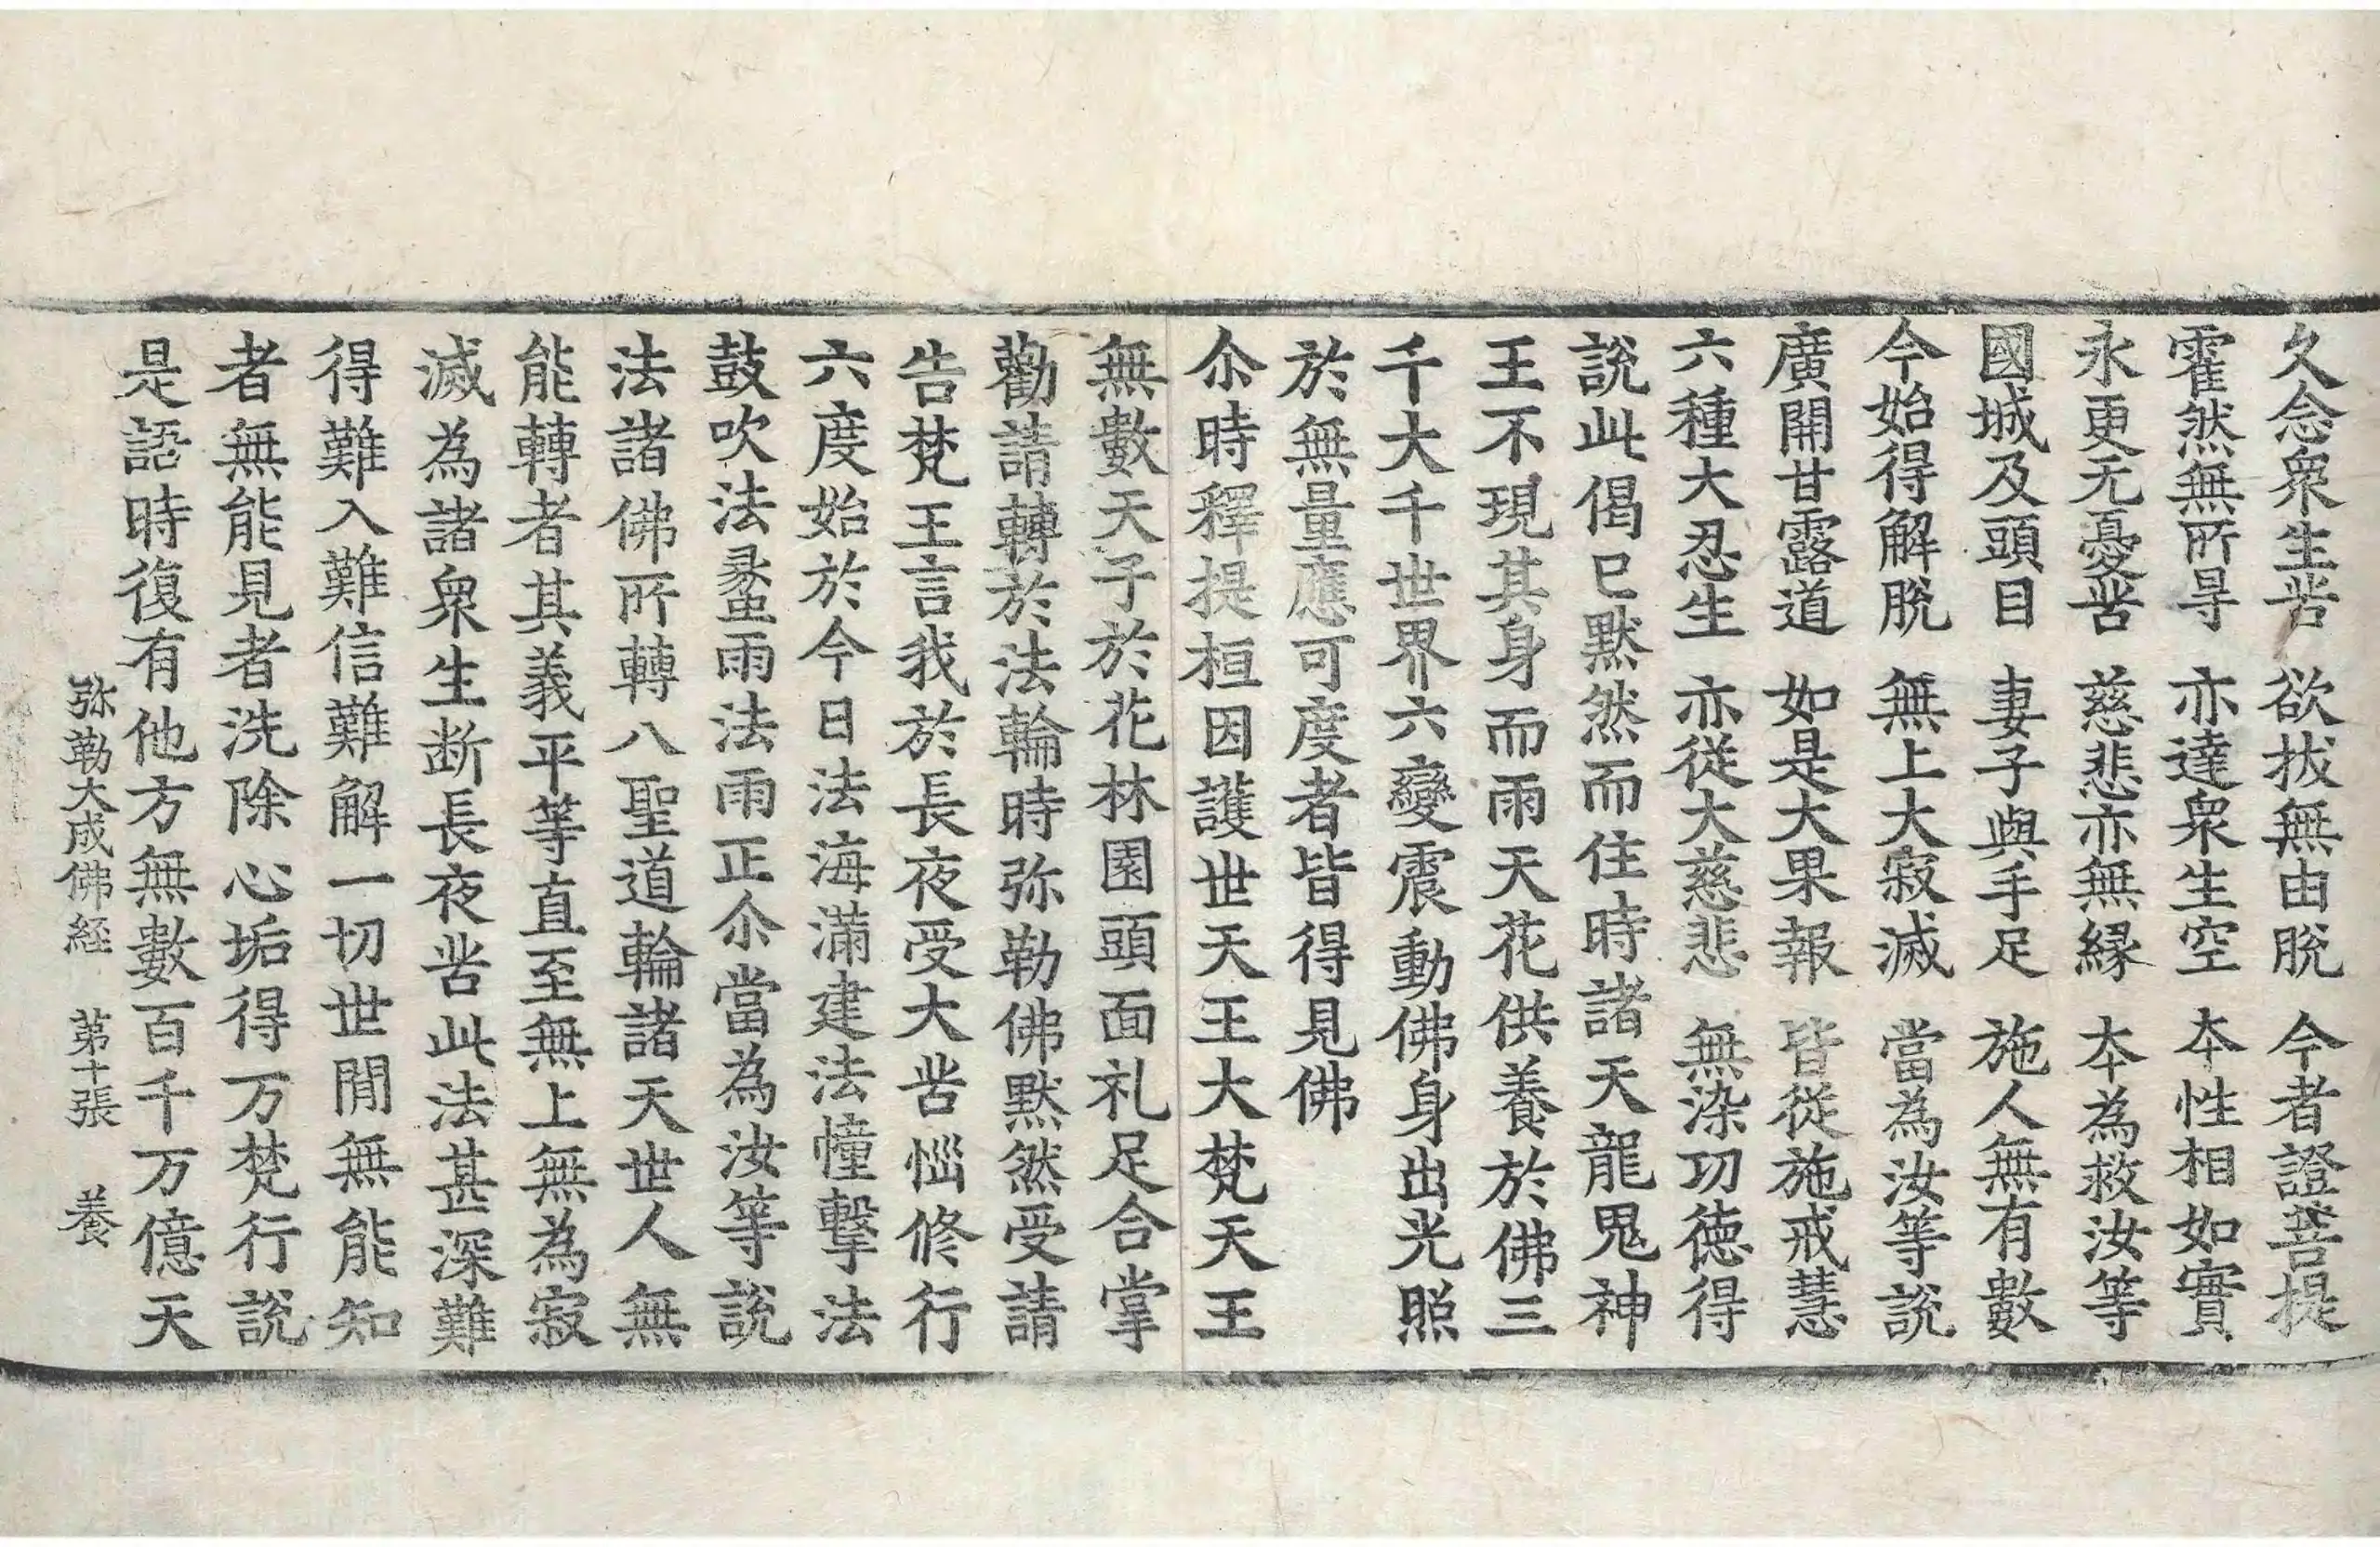 久念衆生苦　欲拔無由脫　今者證菩提
霍然無所㝵　亦達衆生空　本性相如實
永更无憂苦　慈悲亦無緣　本為救汝等
國城及頭目　妻子與手足　施人無有數
今始得解脫　無上大寂滅　當為汝等說
廣開甘露道　如是大果報　皆從施戒慧
六種大忍生　亦從大慈悲　無染功德得
說此偈已默然而住時諸天龍鬼神
王不現其身而雨天花供養於佛三
千大千世界六變震動佛身出光照
於無量應可度者皆得見佛
尒時釋提桓因護世天王大梵天王
無數天子於花林園頭面礼足合掌
勸請轉於法輪時弥勒佛默然受請
告梵王言我於長夜受大苦惱修行
六度始於今日法海滿建法幢擊法
鼓吹法蠡雨法雨正尒當為汝等說
法諸佛所轉八聖道輪諸天世人無
能轉者其義平等直至無上無為寂
滅為諸衆生断長夜苦此法甚深難
得難入難信難解一切世閒無能知
者無能見者洗除心垢得万梵行說
是語時復有他方無數百千万億天
弥勒大成佛経　第十張　養